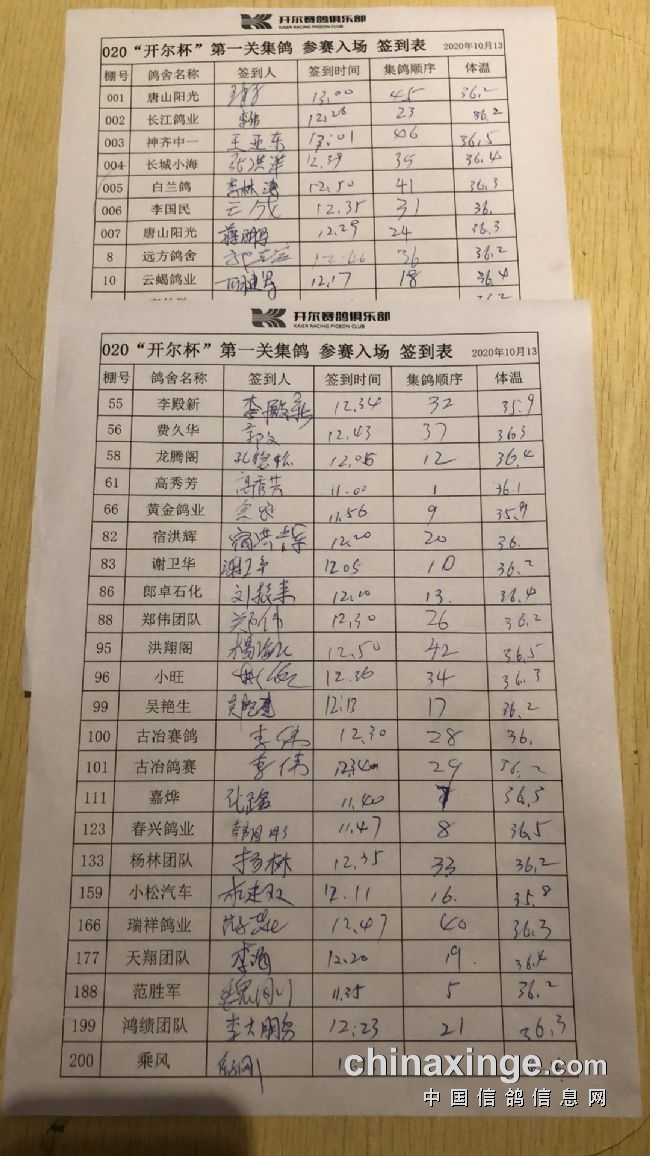 开尔赛鸽俱乐部
KAIER RACING PIGEON CLUB
020“开尔杯”第一关集鸽 参赛入场 签到表 2020年10月13
棚号 鸽舍名称 签到人 签到时间 集鸽顺序 体温
001 唐山阳光 13,00 45 36.2
002 长江鸽业 李伟 12,26 23 36.2
003 神齐中一 王亚东 13:01 46 36.5
004 长城小海 张洪洋 12.39 35 36.4
005 白兰鸽 李林涛 12.50 41 36.3
006 李国民 12.35 31 36.
007 唐山阳光 蒋鹏 12.29 24 36.3
8 远方鸽舍 36 36.2
10 云蝎鸽业 12.17 18 36.4
开尔赛鸽俱乐部
KAIER RACING PIGEON CLUB
020“开尔杯”第一关集鸽 参赛入场 签到表 2020年10月13
棚号 鸽舍名称 签到人 签到时间 集鸽顺序 体温
55 李殿新 李殿新 12.34 32 35.9
56 费久华 12.43 37 36.3
58 龙腾阁 12.05 12 36.4
61 高秀芳 高秀芳 11.00 1 36.1
66 黄金鸽业 11.56 9 35.9
82 宿洪辉 宿洪辉 12.20 20 36.
83 谢卫华 谢卫华 12.05 10 36.2
86 郎卓石化 刘振来 12.10 13. 36.4
88 郑伟团队 郑伟 12.30 26 36.2
95 洪翔阁 12.50 42 36.5
96 小旺 12.36 34 36.3
99 吴艳生 12:13 17 36.2
100 古冶赛鸽 李伟 12.30 28 36.
101 古冶鸽赛 李伟 29 36.2
111 嘉烨 11.40 7 36.5
123 春兴鸽业 韩明 11.47 8 36.5
133 杨林团队 杨林 12.35 33 36.2
159 小松汽车 12.11 16. 35.8
166 瑞祥鸽业 12.47 40 36.3
177 天翔团队 李海 12.20 19. 36.4
188 范胜军 11.35 5 36.2
199 鸿绩团队 李大鹏 12:23 21 36.3
200 乘风
chinaxinge.com
中国信鸽信息网